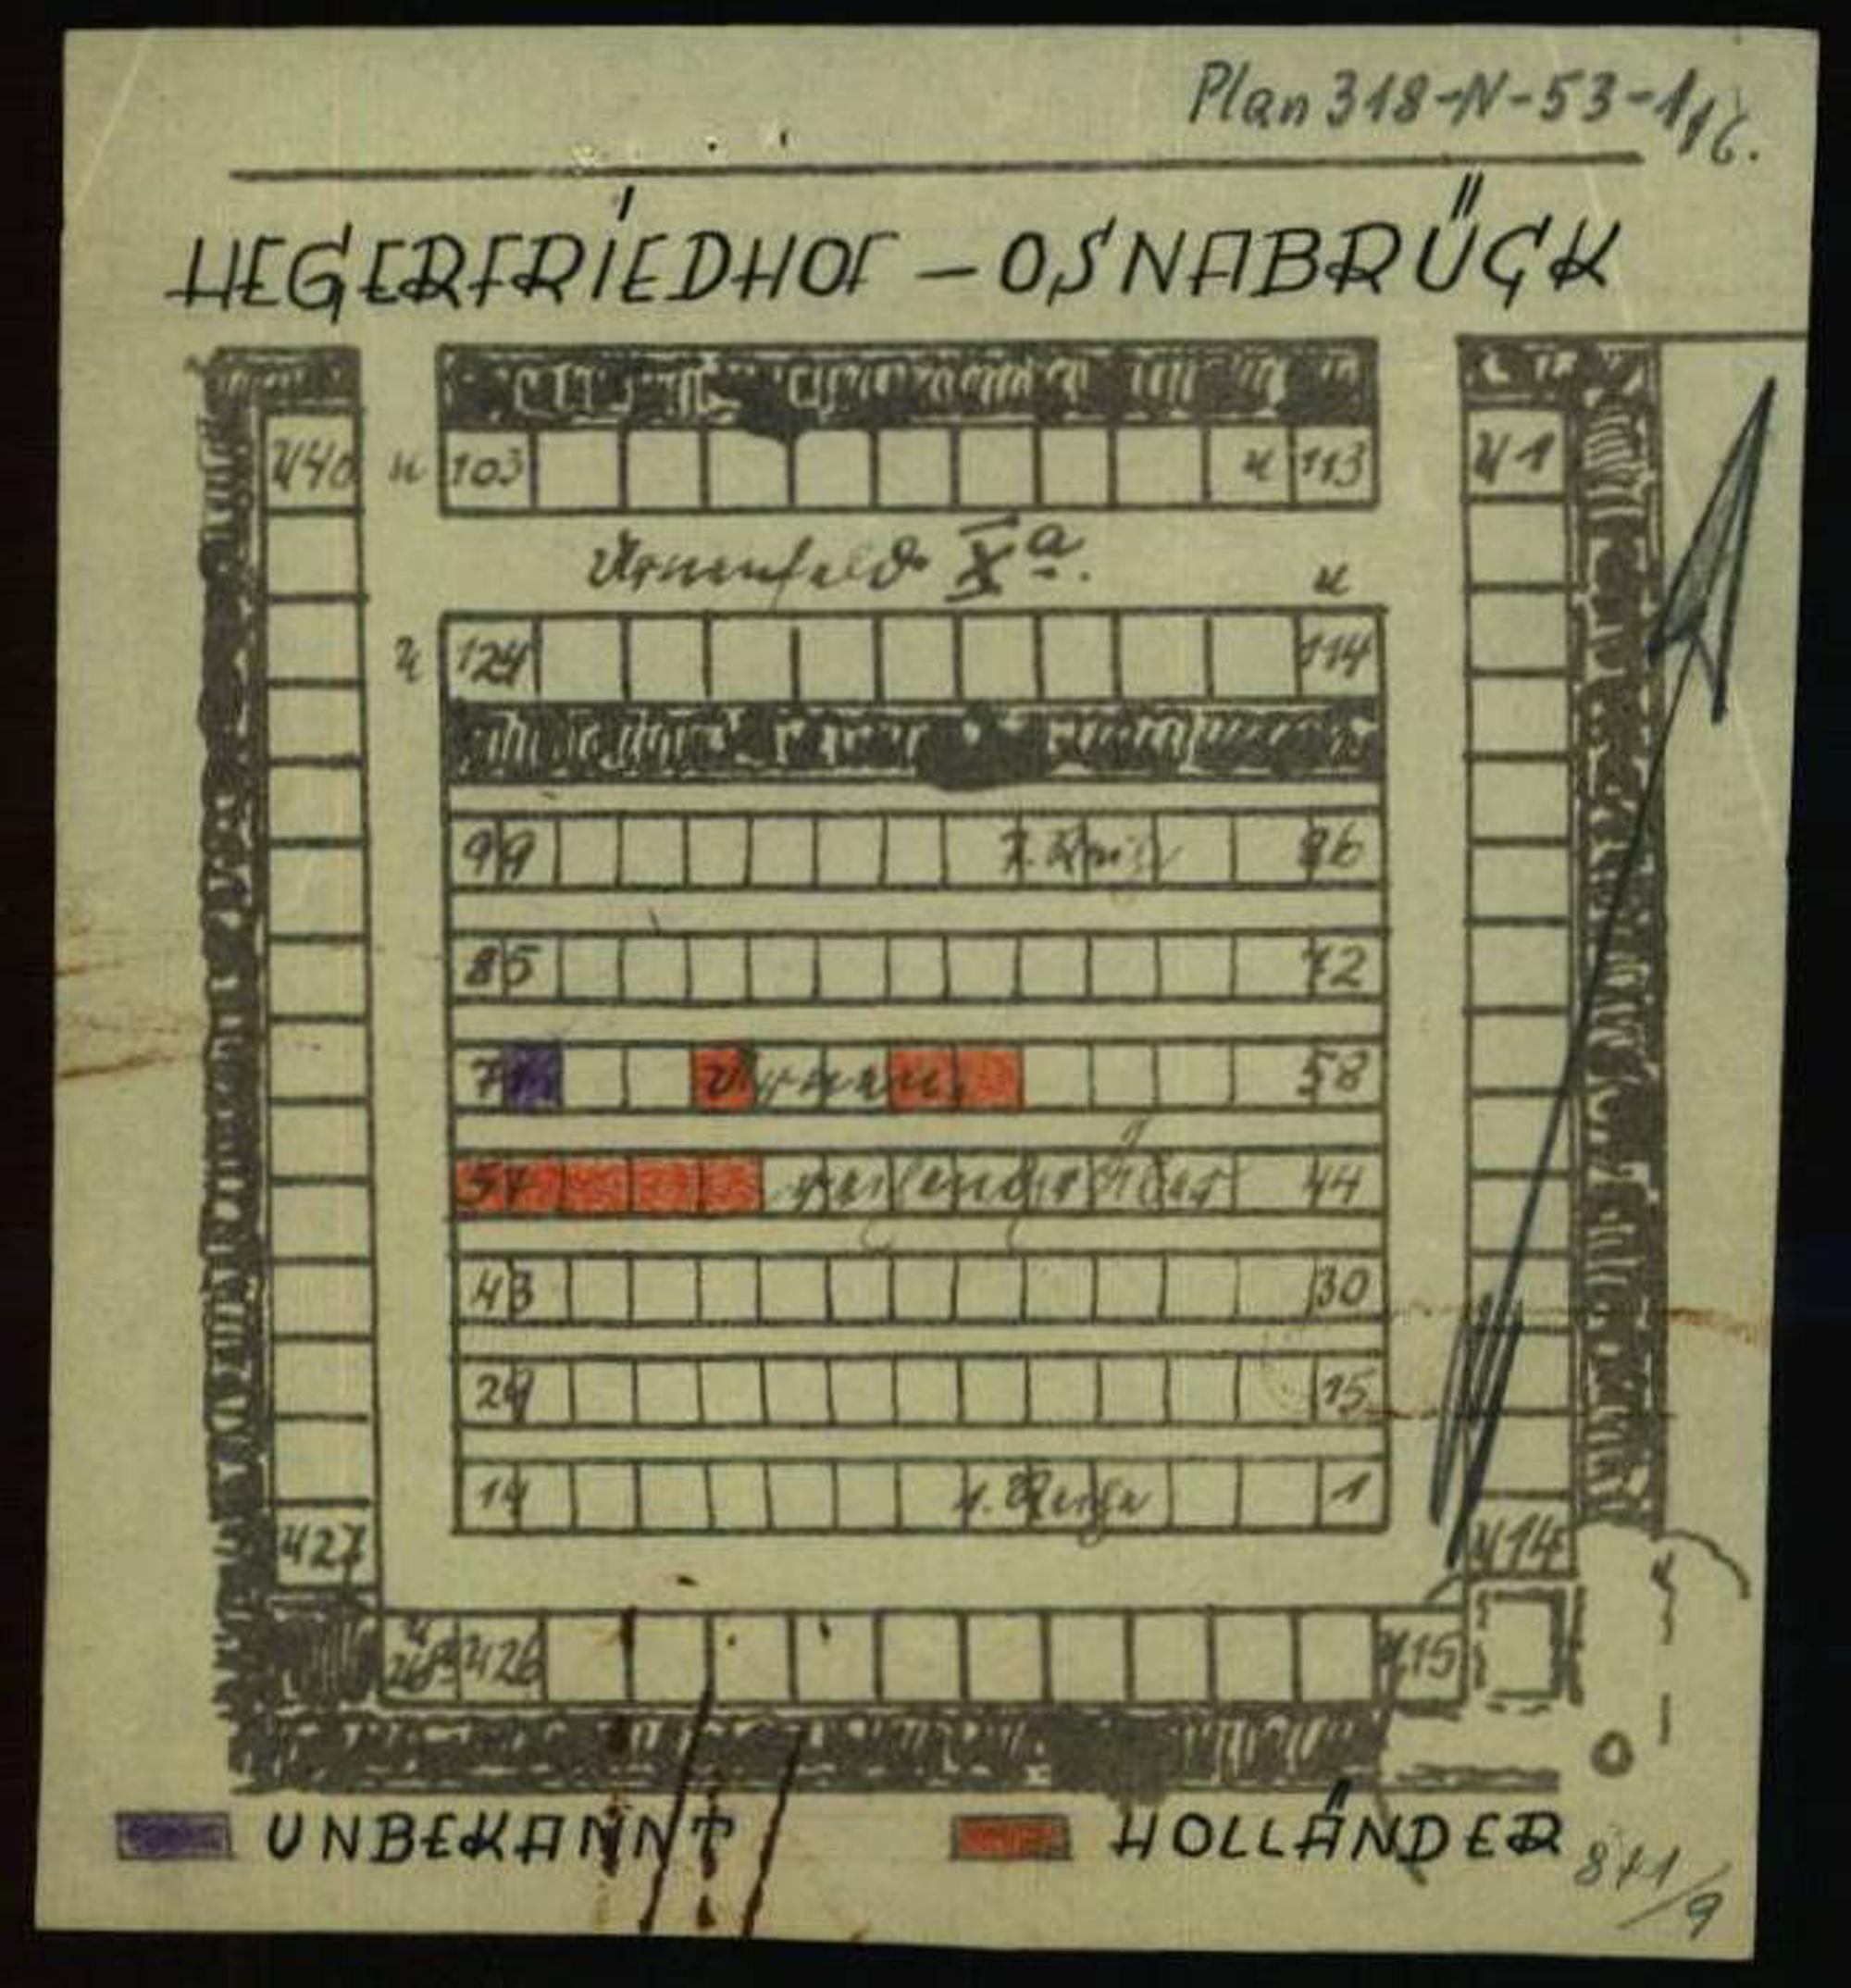 Plan 318-N-53-1/16.
HEGERFRIEDHOF – OSNABRÜCK
U40 u 103 u 113 U1
Urnenfeld Xa.
u
u 124 114
99 7. Reihe 86
85 72
71 Urnen, 58
57 44
43 30
29 15
14 1. Reihe 1
U27 U14
U26 U15
UNBEKANNT HOLLÄNDER
841/9